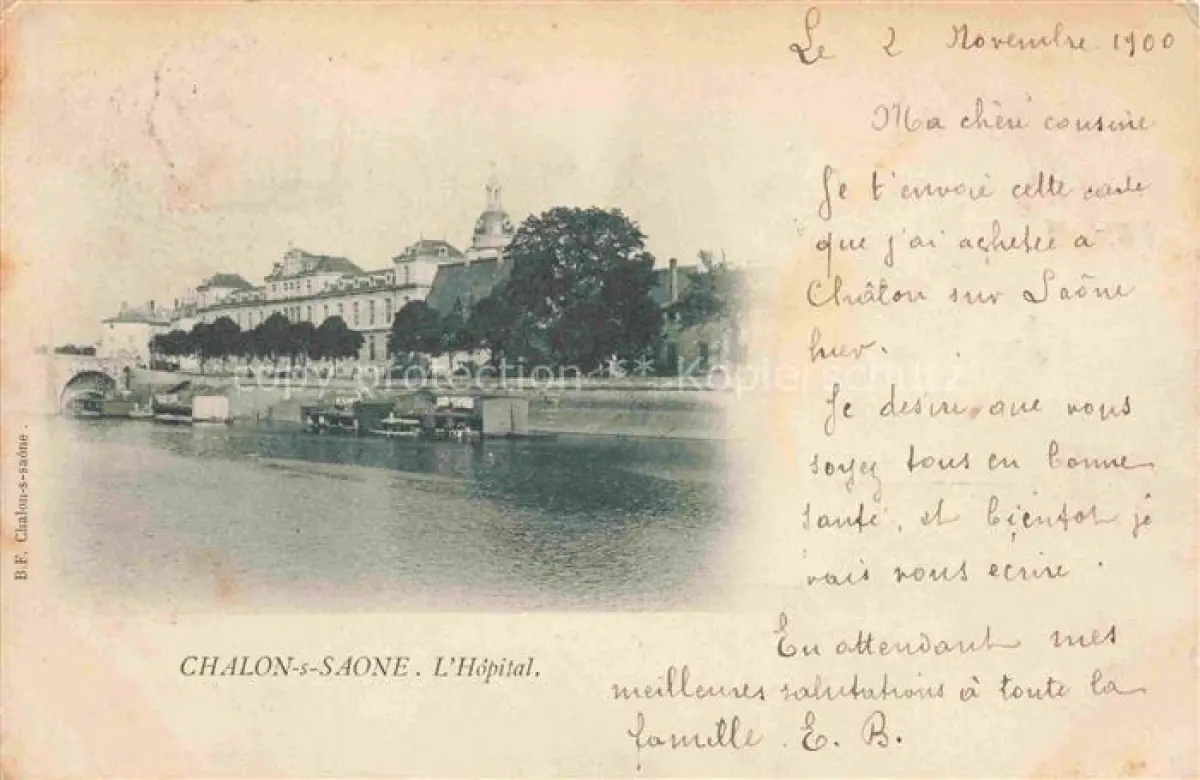 Le 2 Novembre 1900
Ma chèri cousine
Je t'envoie cette carte
que j'ai achetée a
Châlon sur Saône
hier.
Je desire que vous
soyez tous en bonne
santé, et bientot je
vais vous ecrire.
En attendant mes
meilleures salutations à toute la
famille. E. B.
copy protection * * Kopierschutz
B. F. Chalon-s-saône.
CHALON-s-SAONE. L'Hôpital.